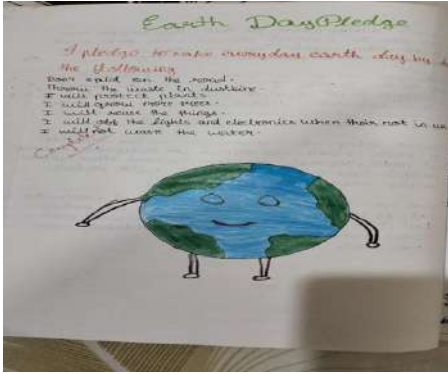 Earth Day Pledge
I pledge to make everyday earth day by
the following
Don't spit on the road.
Throw the waste in dustbins.
I will protect plants
I will grow more trees.
I will reuse the things.
I will off the lights and electronics when their not in
I will not waste the water.